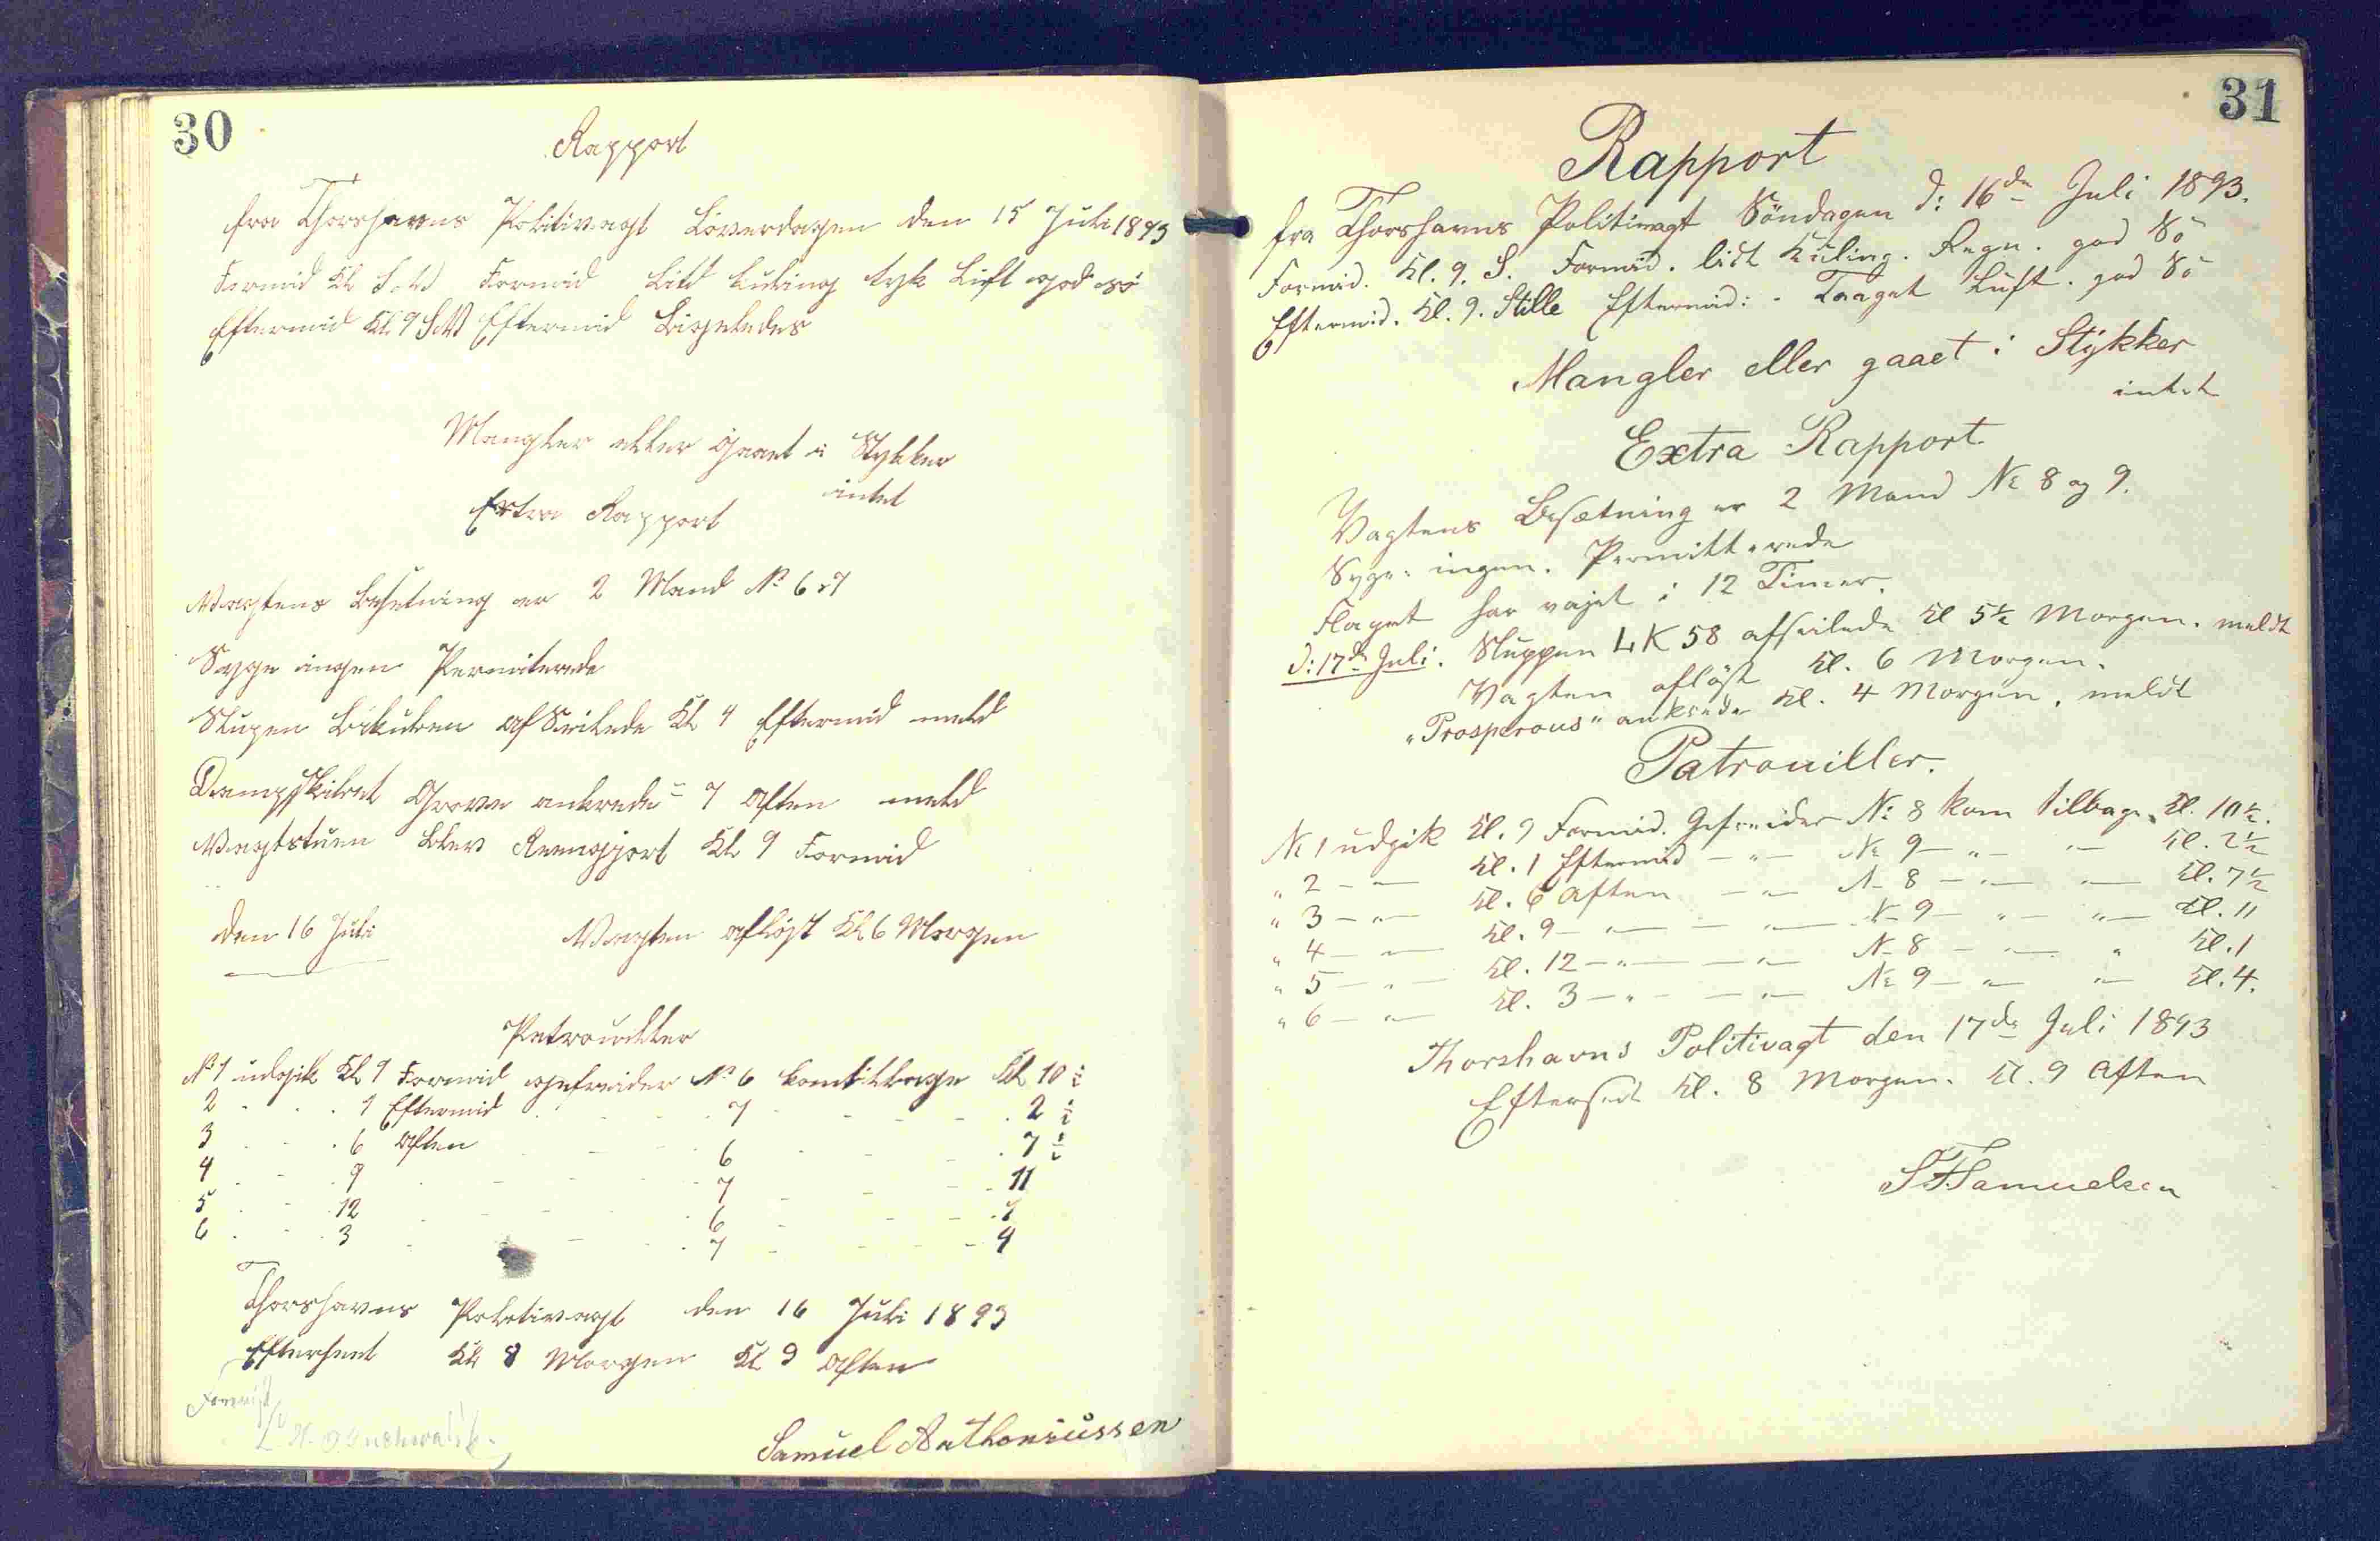 30
Rapport
fra Thorshavns Politivagt Löverdagen den 15 Juli 1893
Formid Kl S.V Formid Lidt kuling tyk Luft god sö
Eftermid Kl. 9 S.V Eftermid Ligeledes
Mangler eller Gaaet i Stykker
intet
Extra Rapport
Vagtens Besetning er 2 Mand No 6 & 7
Syge ingen Permiterede
Slupen Bikuben afSeilede Kl 4 Eftermid meld
Dampskibet ankrede " 7 Aften meld
Vagtstuen blev Reengjort Kl 9 Formid
den 16 Juli Vagten aflöst Kl 6 Morgen
Patrouiller
No 1 udgik Kl 9 Formid gefreider No 6 kom tilbage Kl 10 ½
2 " " 1 Eftermid " 7 " " 2 ½
3 " " 6 Aften " 6 " " 7 ½
4 " " 9 " " 7 " " 11
5 " " 12 " " 6 " " 1
6 " " 3 " " 7 " " 4
Thorshavns Politivagt den 16 Juli 1893
Efterseet Kl 8 Morgen Kl 9 Aften
Forevist
Samuel Anthoniussen
31
Rapport
fra Thorshavns Politivagt Söndagen d: 16de Juli 1893.
Formid. Kl. 9. S. Formid. lidt Kuling. Regn. god Sö
Eftermid. Kl. 9. Stille Eftermid: - Taaget Luft. god Sö
Mangler eller gaaet i Stykker
intet
Extra Rapport
Vagtens Besætning er 2 Mand No 8 og 9.
Syge: ingen. Permitterede
Flaget har vajet i 12 Timer.
d: 17de Juli. Sluppen LK 58 afseilede Kl 5½ Morgen. meldt
Vagten aflöst Kl. 6 Morgen.
"Prosperous" ankrede Kl. 4 Morgen, meldt
Patrouiller.
No 1 udgik Kl. 9 Formid. Gefreider No 8 kom tilbage Kl. 10½.
" 2 — " — Kl. 1 Eftermid — " — No 9 — " — " — Kl. 2½
" 3 — " — Kl. 6 Aften — " — No 8 — " — " — Kl. 7½
" 4 — " — Kl. 9 — " — — " — No 9 — " — " — Kl. 11
" 5 — " — Kl. 12 — " — — " — No 8 — " — " Kl. 1
" 6 — " — Kl. 3 — " — — " — No 9 — " — " — Kl. 4.
Thorshavns Politivagt den 17de Juli 1893
Efterset Kl. 8 Morgen. Kl. 9 Aften
S F Samuelsen